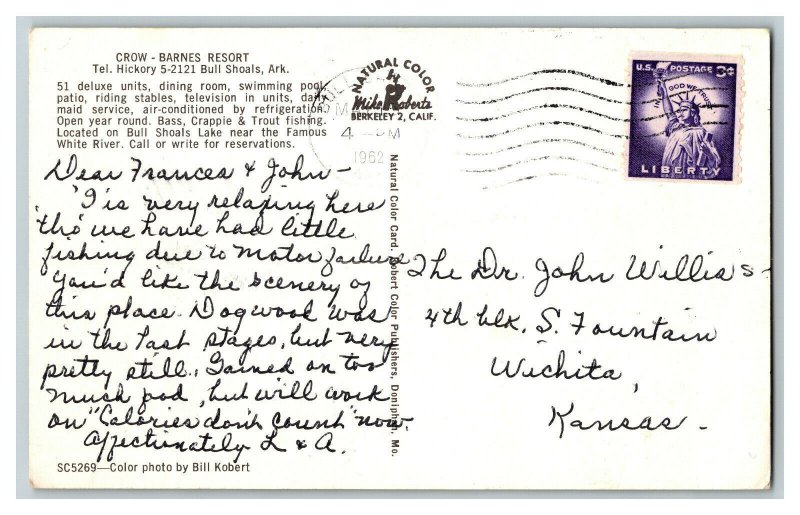 CROW - BARNES RESORT
Tel. Hickory 5-2121 Bull Shoals, Ark.
51 deluxe units, dining room, swimming pool,
patio, riding stables, television in units, daily
maid service, air-conditioned by refrigeration.
Open year round. Bass, Crappie & Trout fishing.
Located on Bull Shoals Lake near the Famous
White River. Call or write for reservations.
Dear Frances & John -
'Tis very relaxing here
tho' we have had little
fishing due to motor failure.
You'd like the scenery of
this place. Dogwood was
in the last stages, but very
pretty still. Gained on too
much food, but will work
on "Calories don't count" now
Affectionately L & A.
SC5269—Color photo by Bill Kobert
NATURAL COLOR
by
Mike Roberts
BERKELEY 2, CALIF.
4 PM
1962
Natural Color Card. Kobert Color Publishers, Doniphan, Mo.
U.S. POSTAGE 3¢
IN GOD WE TRUST
LIBERTY
The Dr. John Willis's -
4th blk. S. Fountain
Wichita,
Kansas -